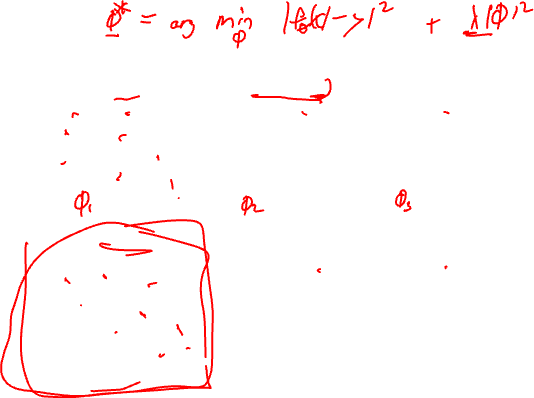 Φ* = arg min |fΦ(x) - y|² + λ|Φ|²
Φ
Φ₁ Φ₂ Φ₃